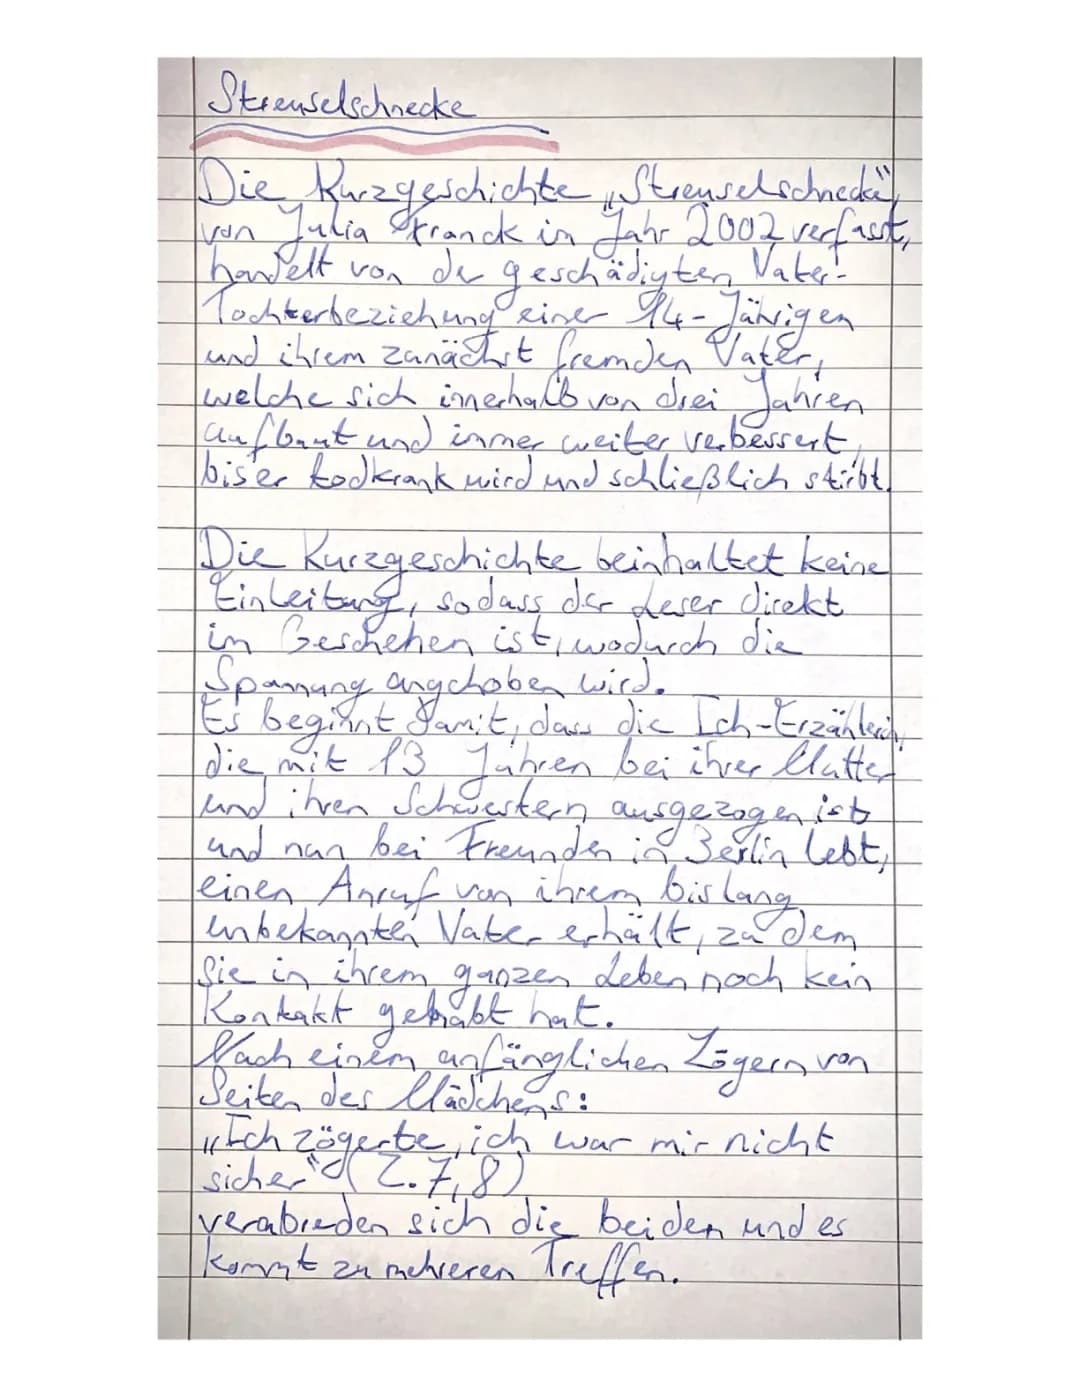 Streuselschnecke
Die Kurzgeschichte „Streuselschnecke",
von Julia Franck im Jahr 2002 verfasst,
handelt von der geschädigten Vater-
Tochterbeziehung einer 14-Jährigen
und ihrem zunächst fremden Vater,
welche sich innerhalb von drei Jahren
aufbaut und immer weiter verbessert,
bis er todkrank wird und schließlich stirbt.
Die Kurzgeschichte beinhaltet keine
Einleitung, sodass der Leser direkt
im Geschehen ist, wodurch die
Spannung angehoben wird.
Es beginnt damit, dass die Ich-Erzählerin,
die mit 13 Jahren bei ihrer Mutter
und ihren Schwestern ausgezogen ist
und nun bei Freunden in Berlin lebt,
einen Anruf von ihrem bislang
unbekannten Vater erhält, zu dem
sie in ihrem ganzen Leben noch kein
Kontakt gehabt hat.
Nach einem anfänglichen Zögern von
Seiten des Mädchens:
„Ich zögerte, ich war mir nicht
sicher" (Z. 7,8)
verabreden sich die beiden und es
kommt zu mehreren Treffen.